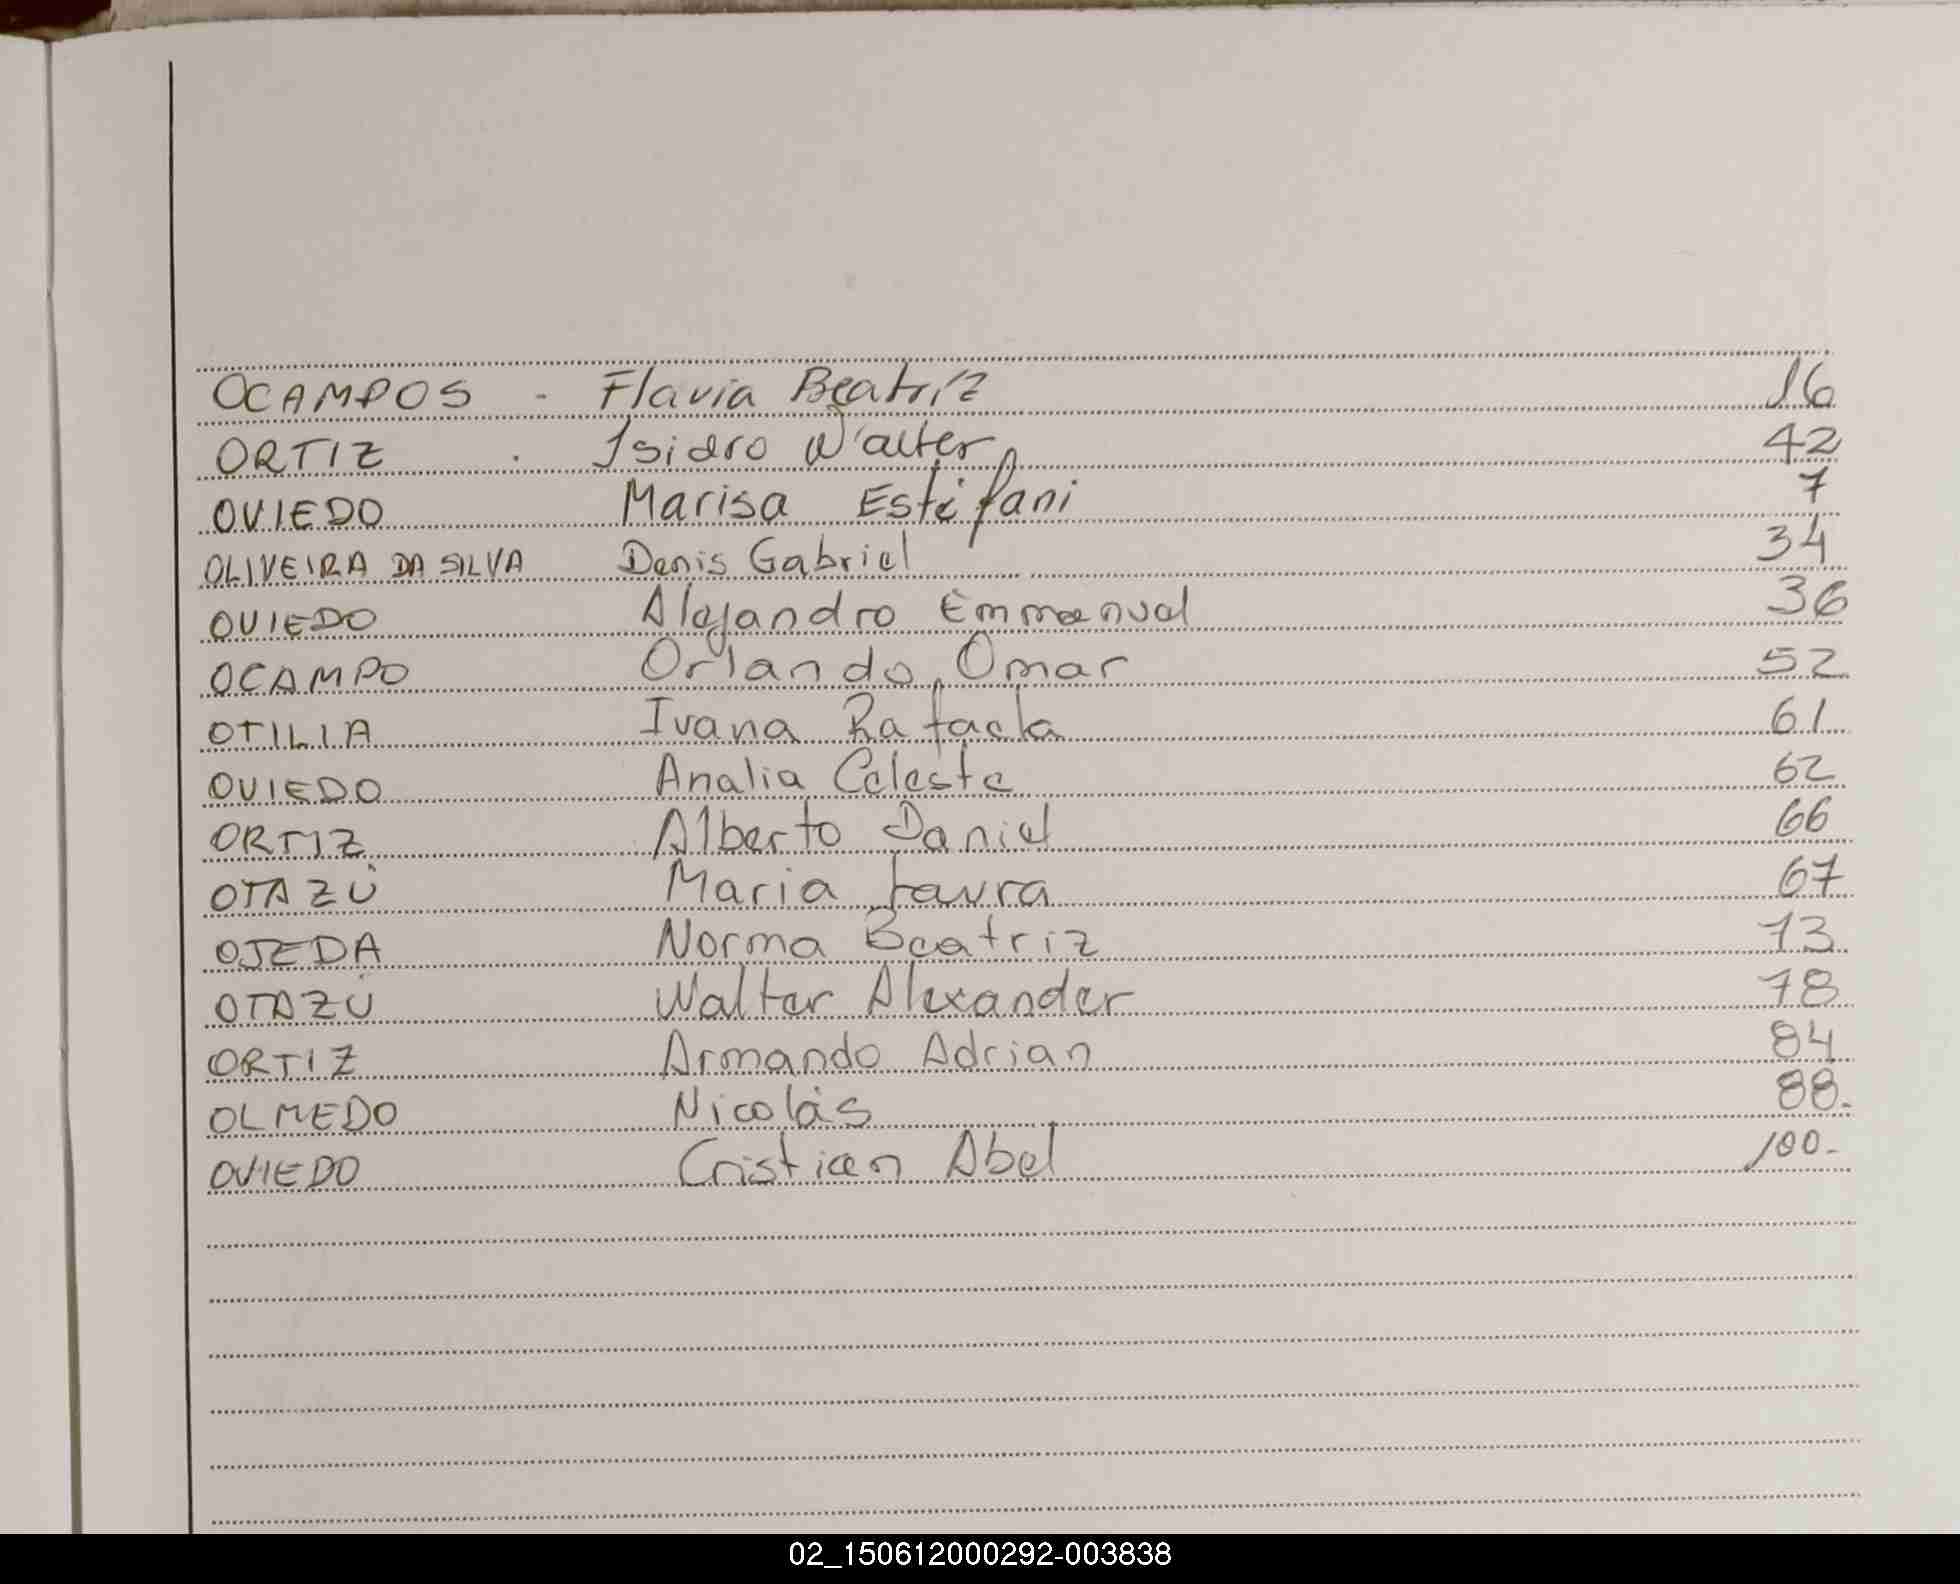 OCAMPOS - Flavia Beatriz 16
ORTIZ . Isidro Walter 42
OVIEDO Marisa Estefani 7
OLIVEIRA DA SILVA Denis Gabriel 34
OVIEDO Alejandro Emmanuel 36
OCAMPO Orlando Omar 52
OTILIA Ivana Rafaela 61
OVIEDO Analia Celeste 62
ORTIZ Alberto Daniel 66
OTAZÚ Maria Laura 67
OJEDA Norma Beatriz 73
OTAZÚ Walter Alexander 78
ORTIZ Armando Adrian 84
OLMEDO Nicolás 88.
OVIEDO Cristian Abel 100.
02_150612000292-003838